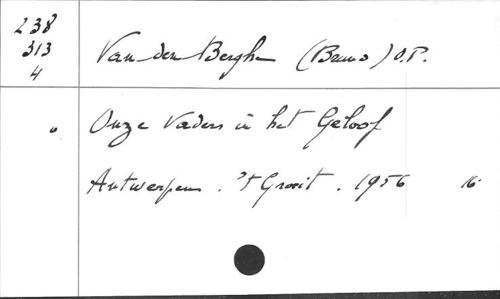 238
313
4
Van den Berghe (Bruno) O.P.
Onze Vaders in het Geloof
Antwerpen. 't Groeit. 1956 16°